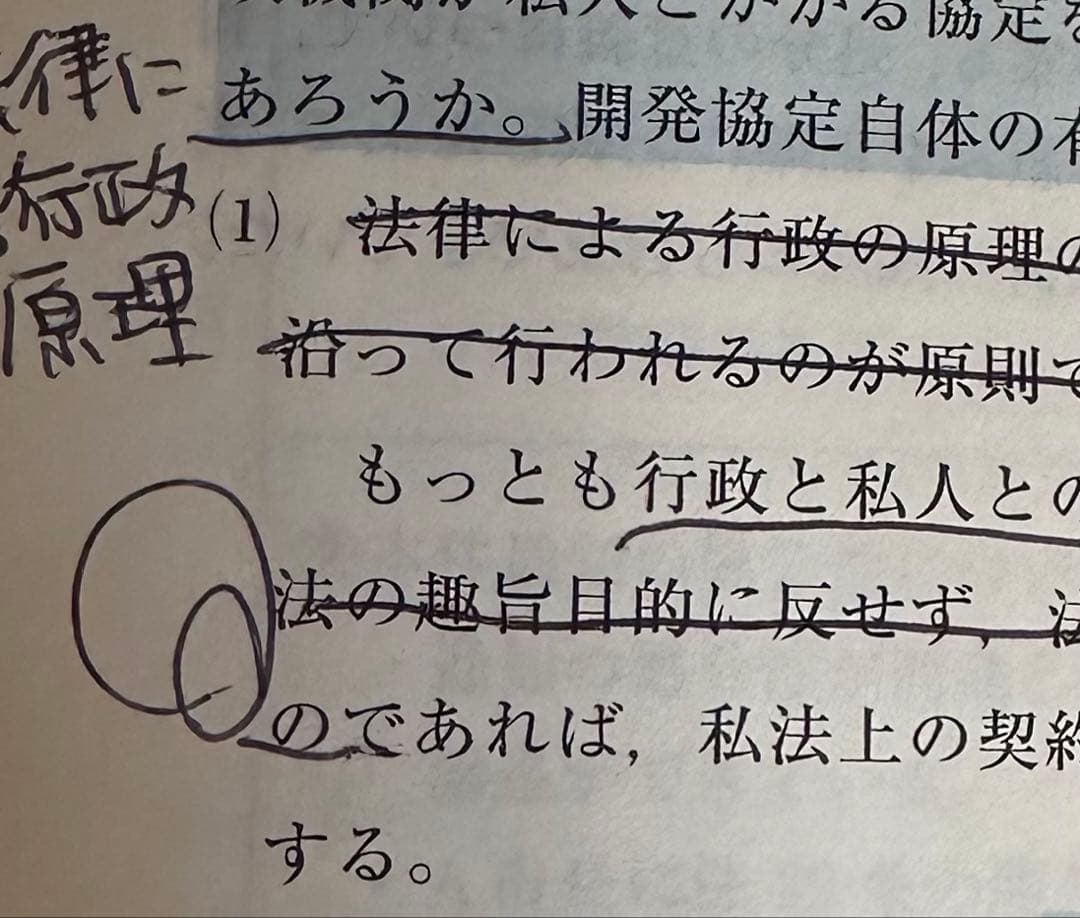 律に
行政
原理
私人とかかる協定を
あろうか。開発協定自体の有
(1) 法律による行政の原理の
沿って行われるのが原則で
もっとも行政と私人との
法の趣旨目的に反せず，法
のであれば，私法上の契約
する。